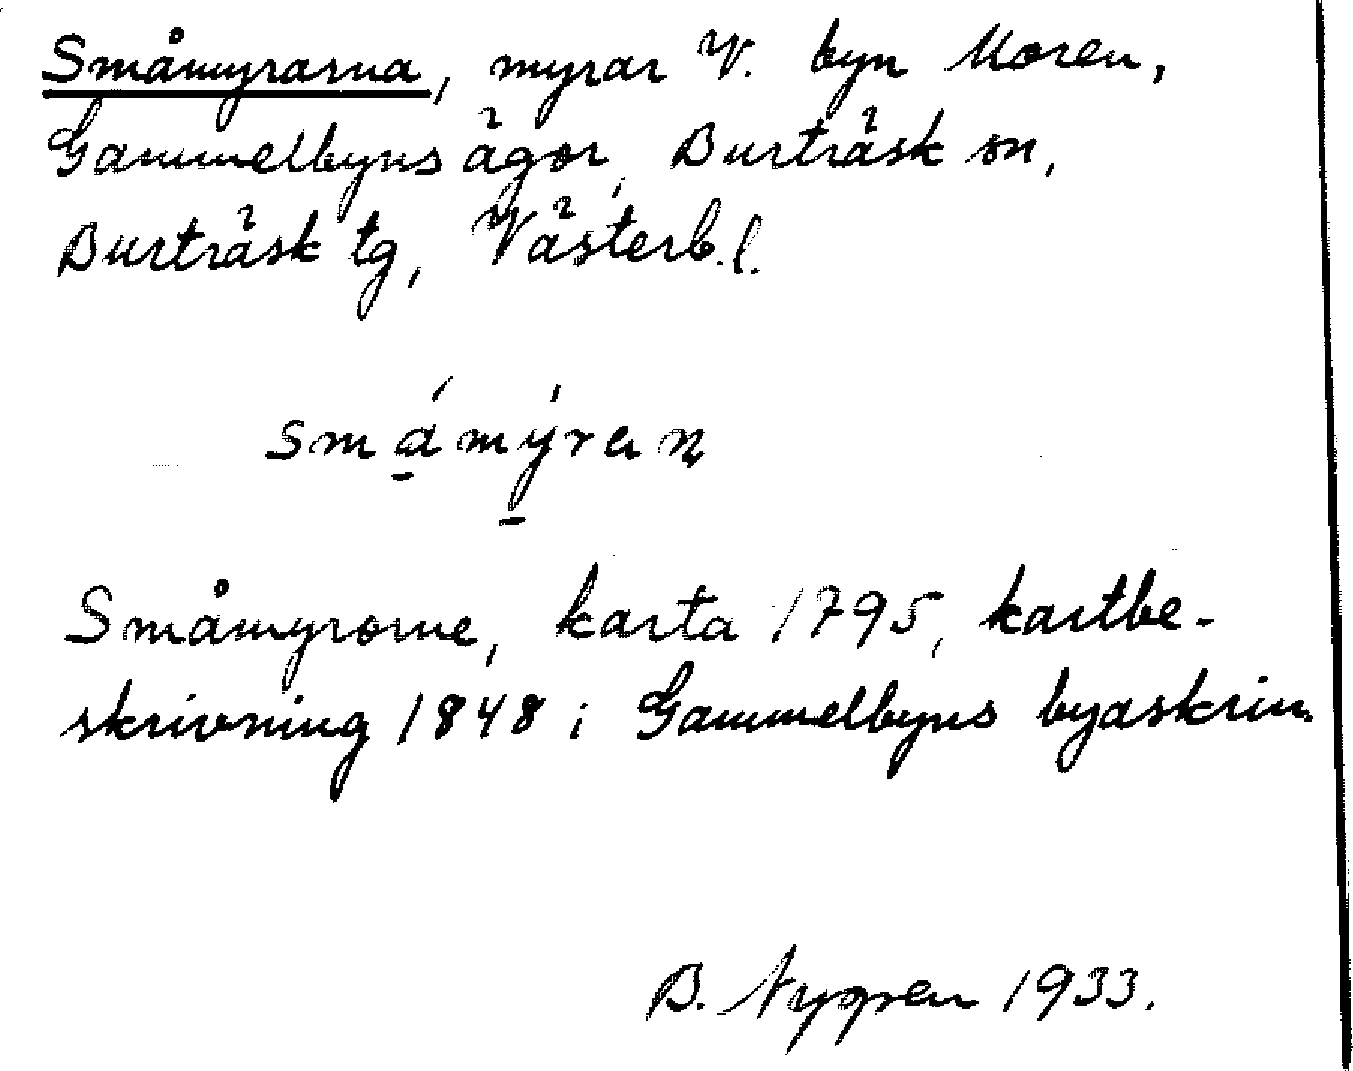 Småmyrarna, myrar V. byn Moren,
Gammelbyns ägor, Burträsk sn,
Burträsk tg, Västerb. l.
småmýran
Småmyrorne, karta 1795, kartbe-
skrivning 1848 i Gammelbyns byaskrin.
B. Nygren 1933.